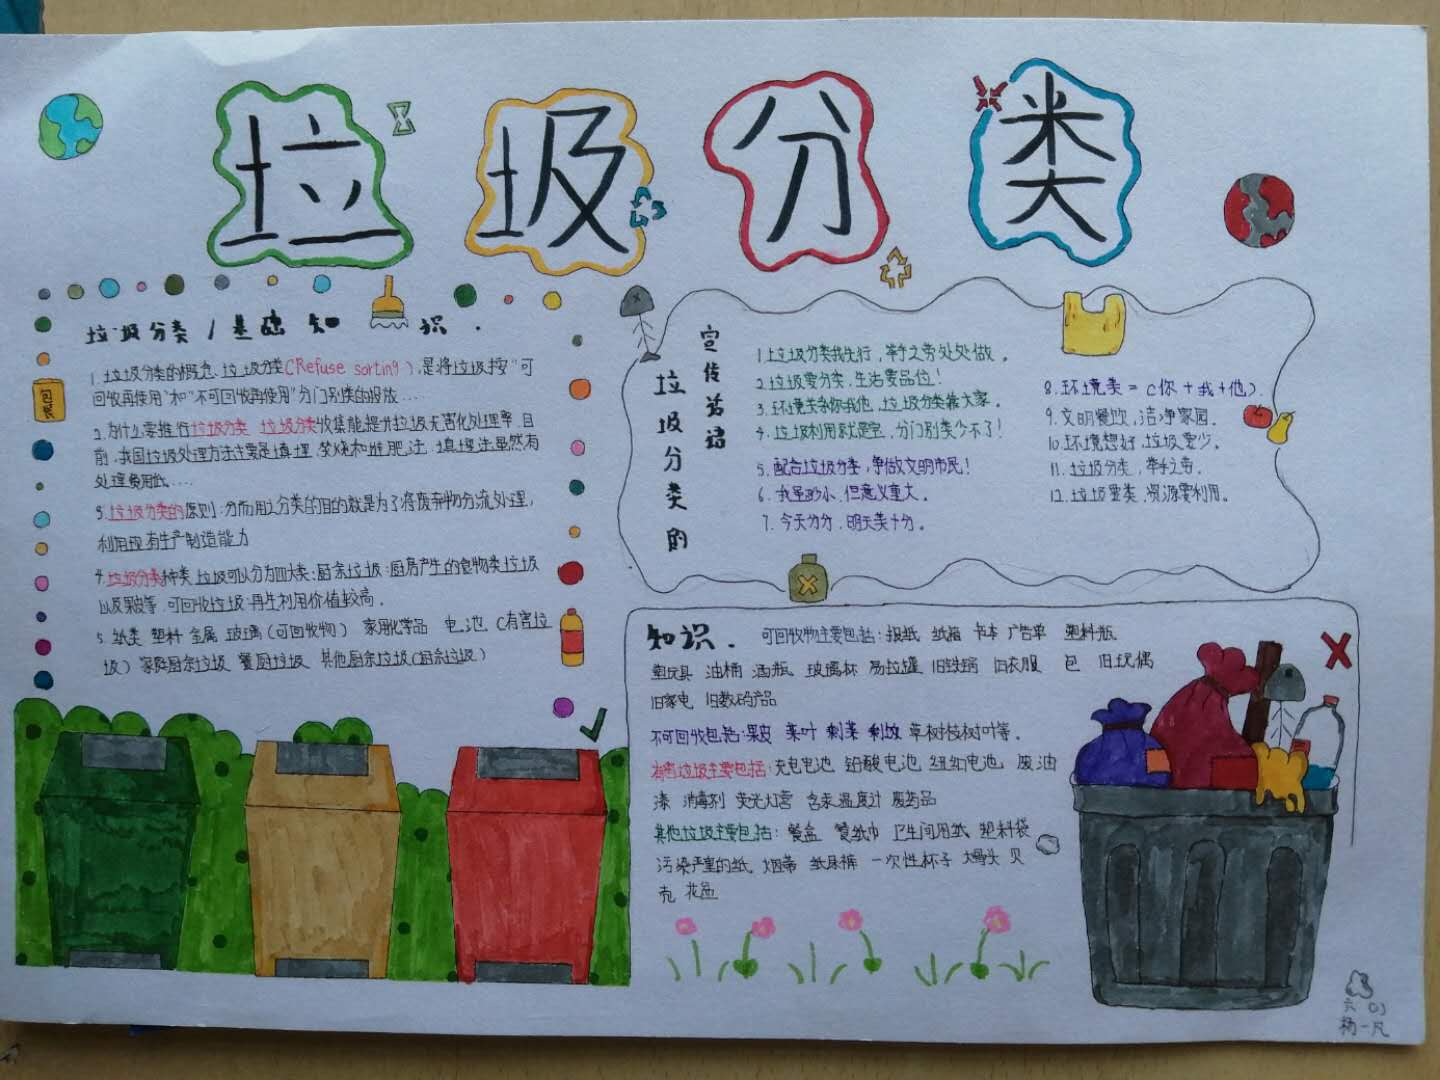 垃圾分类
垃圾分类/基础知识.
1.垃圾分类的概念、垃圾分类(Refuse sorting),是将垃圾按"可
回收再使用"和"不可回收再使用"分门别类的投放...
2.为什么要推行垃圾分类 垃圾分类收集能提升垃圾无害化处理率.目
前,我国垃圾处理方法主要是填埋,焚烧和堆肥法.填埋法虽然有
处理费用低....
3.垃圾分类的原则:分而用之分类的目的就是为了将废弃物分流处理,
利用现有生产制造能力
4.垃圾分类种类 垃圾可以分为四大类:厨余垃圾:厨房产生的食物类垃圾
以及果皮等.可回收垃圾:再生利用价值较高.
5.纸类 塑料 金属 玻璃(可回收物) 家用化学品 电池(有害垃
圾) 家庭厨余垃圾 餐厨垃圾 其他厨余垃圾(厨余垃圾)
垃圾分类的
宣传标语
1.垃圾分类我先行,举手之劳处处做.
2.垃圾要分类,生活要品位!
3.环境关系你我他,垃圾分类靠大家.
4.垃圾利用就是宝,分门别类少不了!
5.配合垃圾分类,争做文明市民!
6.我虽渺小,但意义重大.
7.今天分分,明天美十分.
8.环境美=(你+我+他).
9.文明餐饮,洁净家园.
10.环境想好,垃圾要少.
11.垃圾分类,举手之劳.
12.垃圾要类,资源要利用.
知识. 可回收物主要包括:报纸 纸箱 卡本 广告单 塑料瓶
塑玩具 油桶 酒瓶 玻璃杯 易拉罐 旧铁锅 旧衣服 包 旧玩偶
旧家电 旧数码产品
不可回收包括:果皮 菜叶 剩菜 剩饭 草树枝树叶等.
有害垃圾主要包括:充电电池 铅酸电池 纽扣电池 废油
漆 消毒剂 荧光灯管 含汞温度计 废药品
其他垃圾主要包括:餐盒 餐纸巾 卫生间用纸 塑料袋
污染严重的纸 烟蒂 纸尿裤 一次性杯子 大骨头 贝
壳 花盆
六(1)
杨一凡